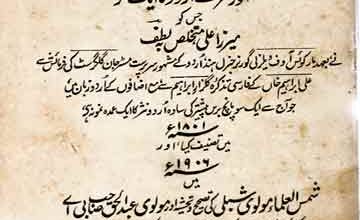 جس کو
میرزا علی متخلص بہ لطف
نے بعہد مارکوئس آف ویلزلی گورنر جنرل ہند اُردو کے مشہور سرپرست مسٹر جان گلگرسٹ کی فرمائش سے
علی ابراہیم خاں کے فارسی تذکرۂ گلزار ابراہیم سے مع اضافوں کے اُردو زبان میں
جو آج سے ایک سو پانچ برس پیشتر کی سادہ اُردو نثر کا ایک عمدہ نمونہ ہی
۱۸۰۱ء
میں تصنیف کیا اور
۱۹۰۶ء
میں
شمس العلما مولوی شبلی کی تصحیح و تحشیہ اور مولوی عبدالحق صاحب بی اے